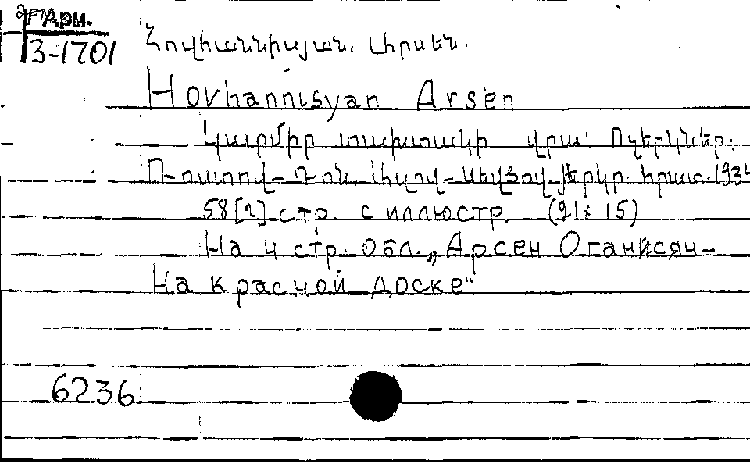 Арм.
3-1701
Հովհաննիսյան, Արսեն.
Hovhannisyan Arsen
Կարմիր տախտակի վրա: Ակնարկներ.
Ռոստով-Դոն, Ազով-Սևծով-երկր. հրատ. 1934
58[2] стр. с иллюстр. (21×15)
На 4 стр. обл. „Арсен Оганисян-
На красной доске"
6236